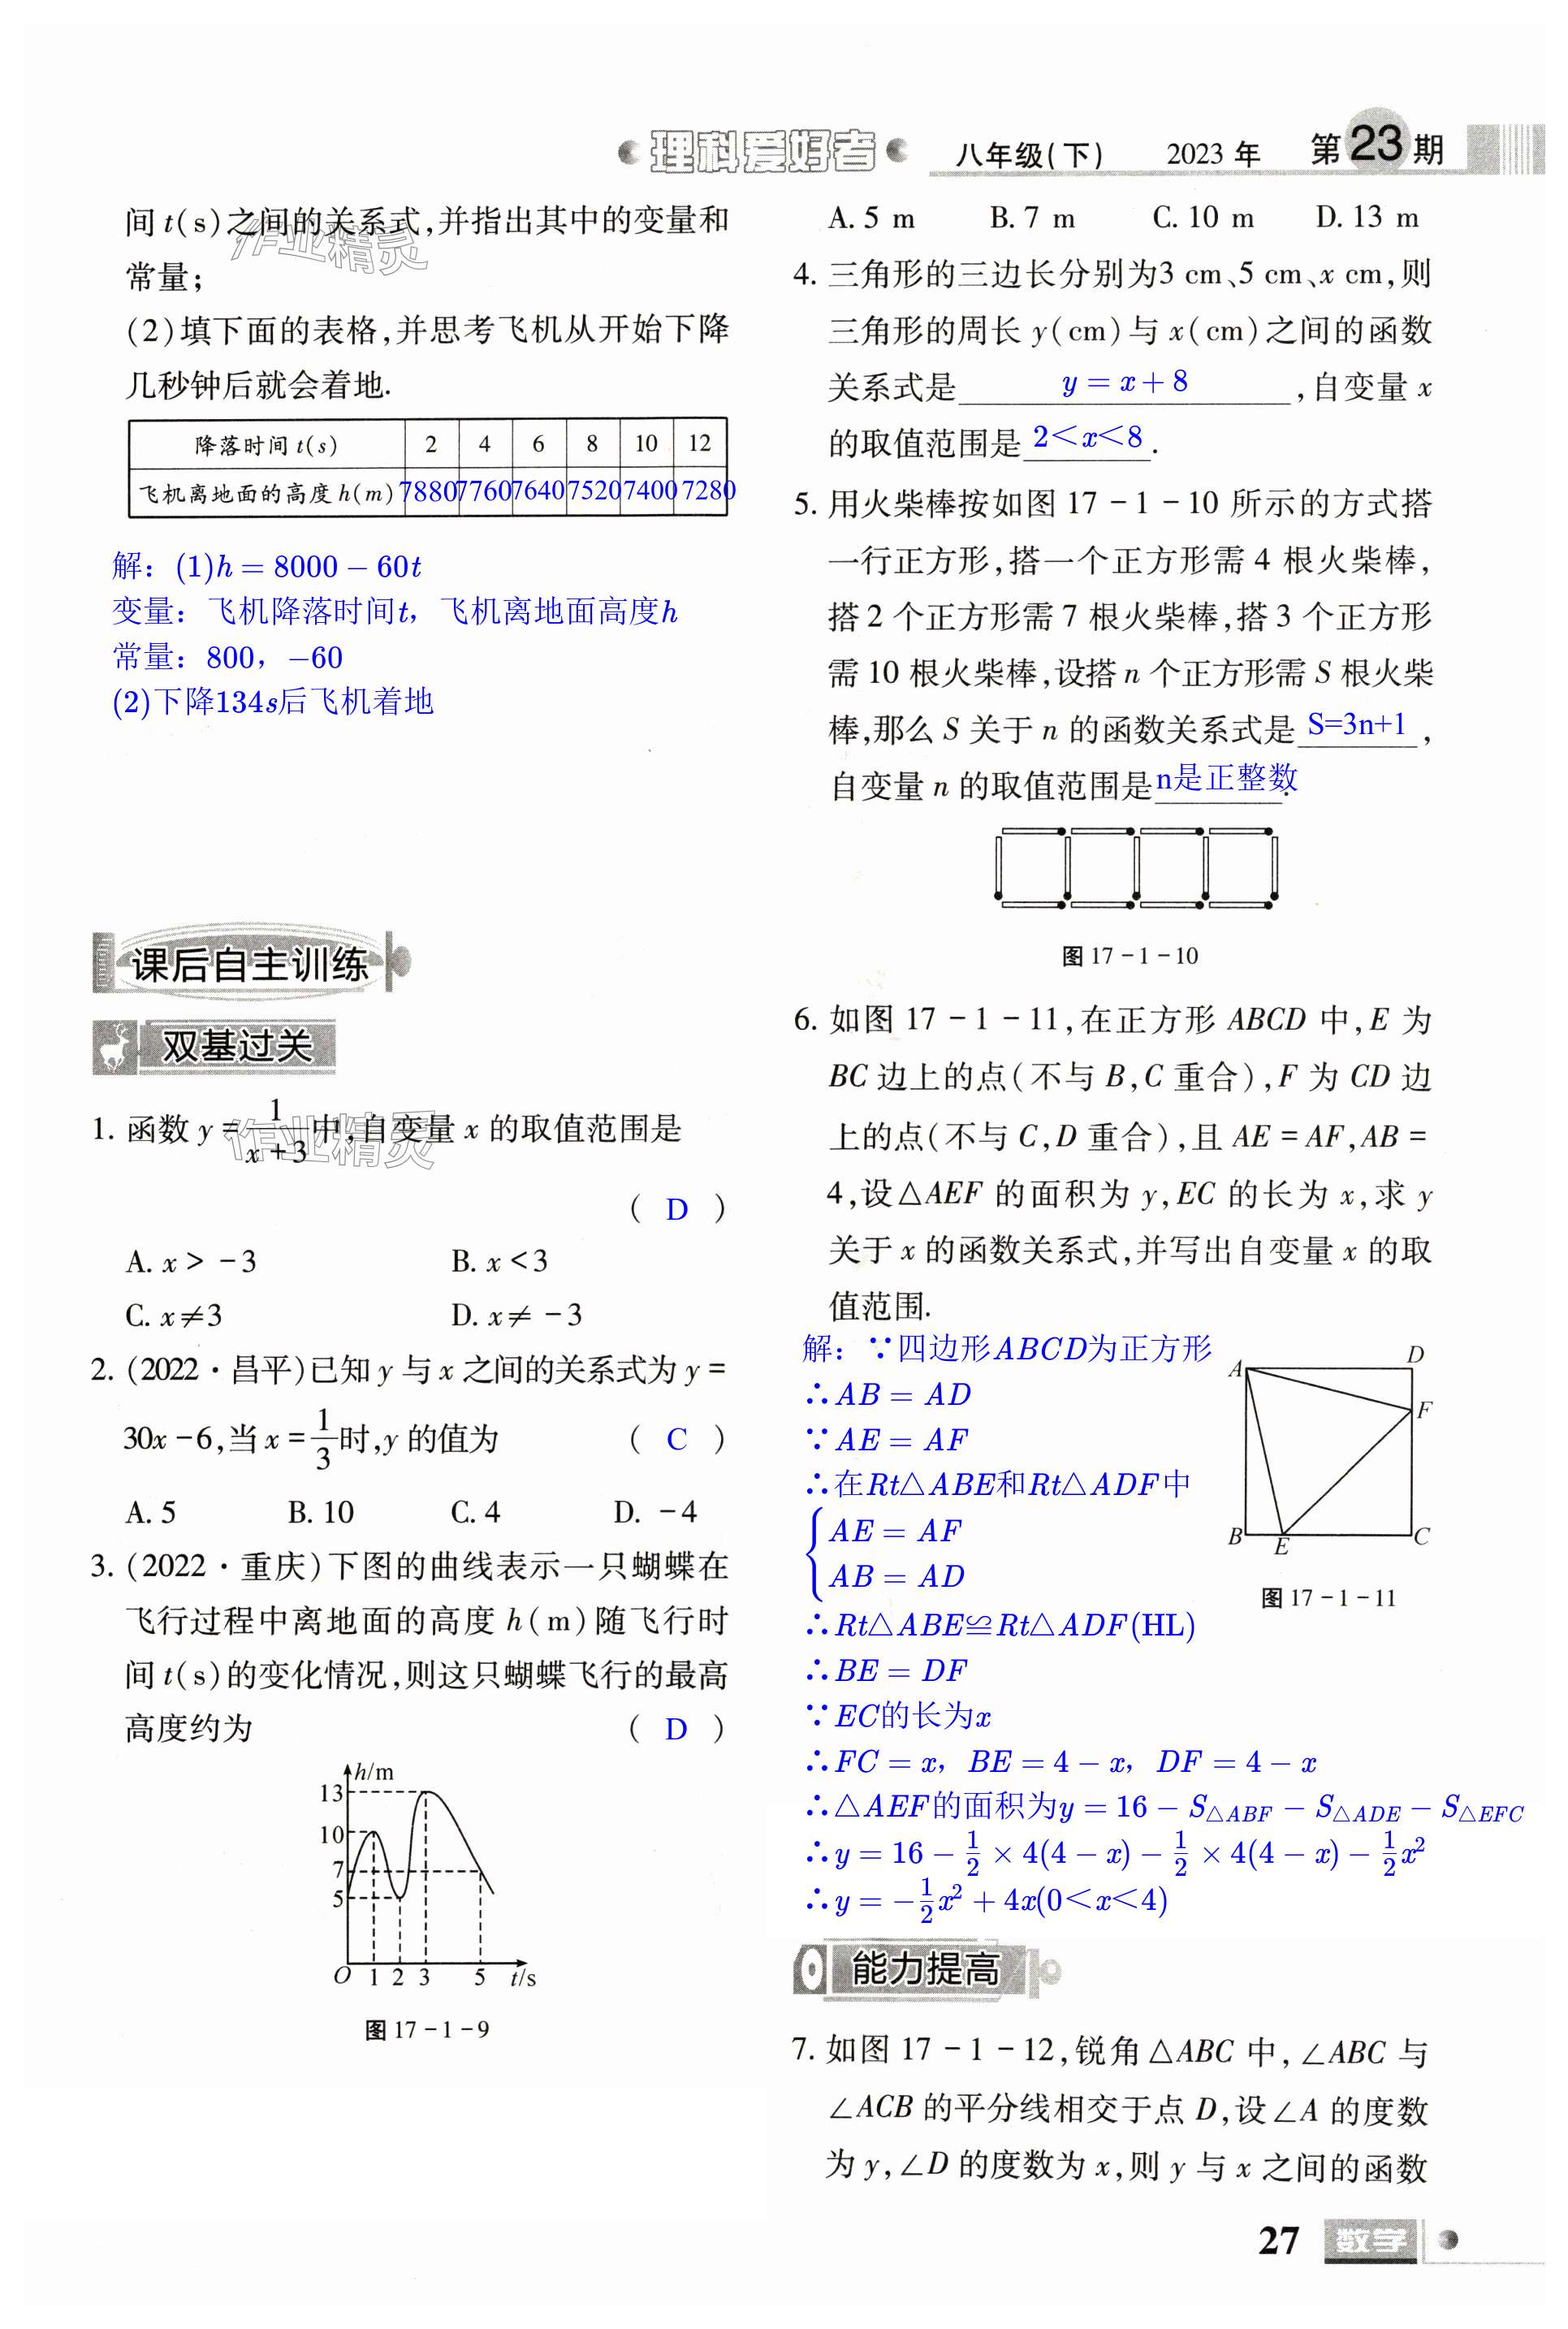 理科爱好者 八年级(下) 2023 年 第23期
间 t(s)之间的关系式,并指出其中的变量和
常量;
(2)填下面的表格,并思考飞机从开始下降
几秒钟后就会着地.
降落时间 t(s) 2 4 6 8 10 12
飞机离地面的高度 h(m) 7880 7760 7640 7520 7400 7280
解：(1)h = 8000 − 60t
变量：飞机降落时间t，飞机离地面高度h
常量：800，−60
(2)下降134s后飞机着地
作业精灵
课后自主训练
双基过关
1. 函数 y = 1/(x+3) 中,自变量 x 的取值范围是
( D )
A. x > -3 B. x < 3
C. x ≠ 3 D. x ≠ -3
作业精灵
2. (2022·昌平)已知 y 与 x 之间的关系式为 y =
30x - 6,当 x = 1/3 时,y 的值为 ( C )
A. 5 B. 10 C. 4 D. -4
3. (2022·重庆)下图的曲线表示一只蝴蝶在
飞行过程中离地面的高度 h(m)随飞行时
间 t(s)的变化情况,则这只蝴蝶飞行的最高
高度约为 ( D )
h/m
13
10
7
5
O 1 2 3 5 t/s
图 17-1-9
A. 5 m B. 7 m C. 10 m D. 13 m
4. 三角形的三边长分别为3 cm、5 cm、x cm,则
三角形的周长 y(cm)与 x(cm)之间的函数
关系式是 y = x + 8 ,自变量 x
的取值范围是 2<x<8 .
5. 用火柴棒按如图 17-1-10 所示的方式搭
一行正方形,搭一个正方形需 4 根火柴棒,
搭 2 个正方形需 7 根火柴棒,搭 3 个正方形
需 10 根火柴棒,设搭 n 个正方形需 S 根火柴
棒,那么 S 关于 n 的函数关系式是 S=3n+1 ,
自变量 n 的取值范围是 n是正整数 .
图 17-1-10
6. 如图 17-1-11,在正方形 ABCD 中,E 为
BC 边上的点(不与 B,C 重合),F 为 CD 边
上的点(不与 C,D 重合),且 AE = AF,AB =
4,设△AEF 的面积为 y,EC 的长为 x,求 y
关于 x 的函数关系式,并写出自变量 x 的取
值范围.
解：∵四边形ABCD为正方形
∴AB = AD
∵AE = AF
∴在Rt△ABE和Rt△ADF中
{AE = AF
AB = AD
∴Rt△ABE≌Rt△ADF(HL)
∴BE = DF
∵EC的长为x
∴FC = x，BE = 4 − x，DF = 4 − x
∴△AEF的面积为y = 16 − S△ABF − S△ADE − S△EFC
∴y = 16 − 1/2 × 4(4 − x) − 1/2 × 4(4 − x) − 1/2x²
∴y = −1/2x² + 4x(0<x<4)
A D
F
B E C
图 17-1-11
能力提高
7. 如图 17-1-12,锐角△ABC 中,∠ABC 与
∠ACB 的平分线相交于点 D,设∠A 的度数
为 y,∠D 的度数为 x,则 y 与 x 之间的函数
27 数学